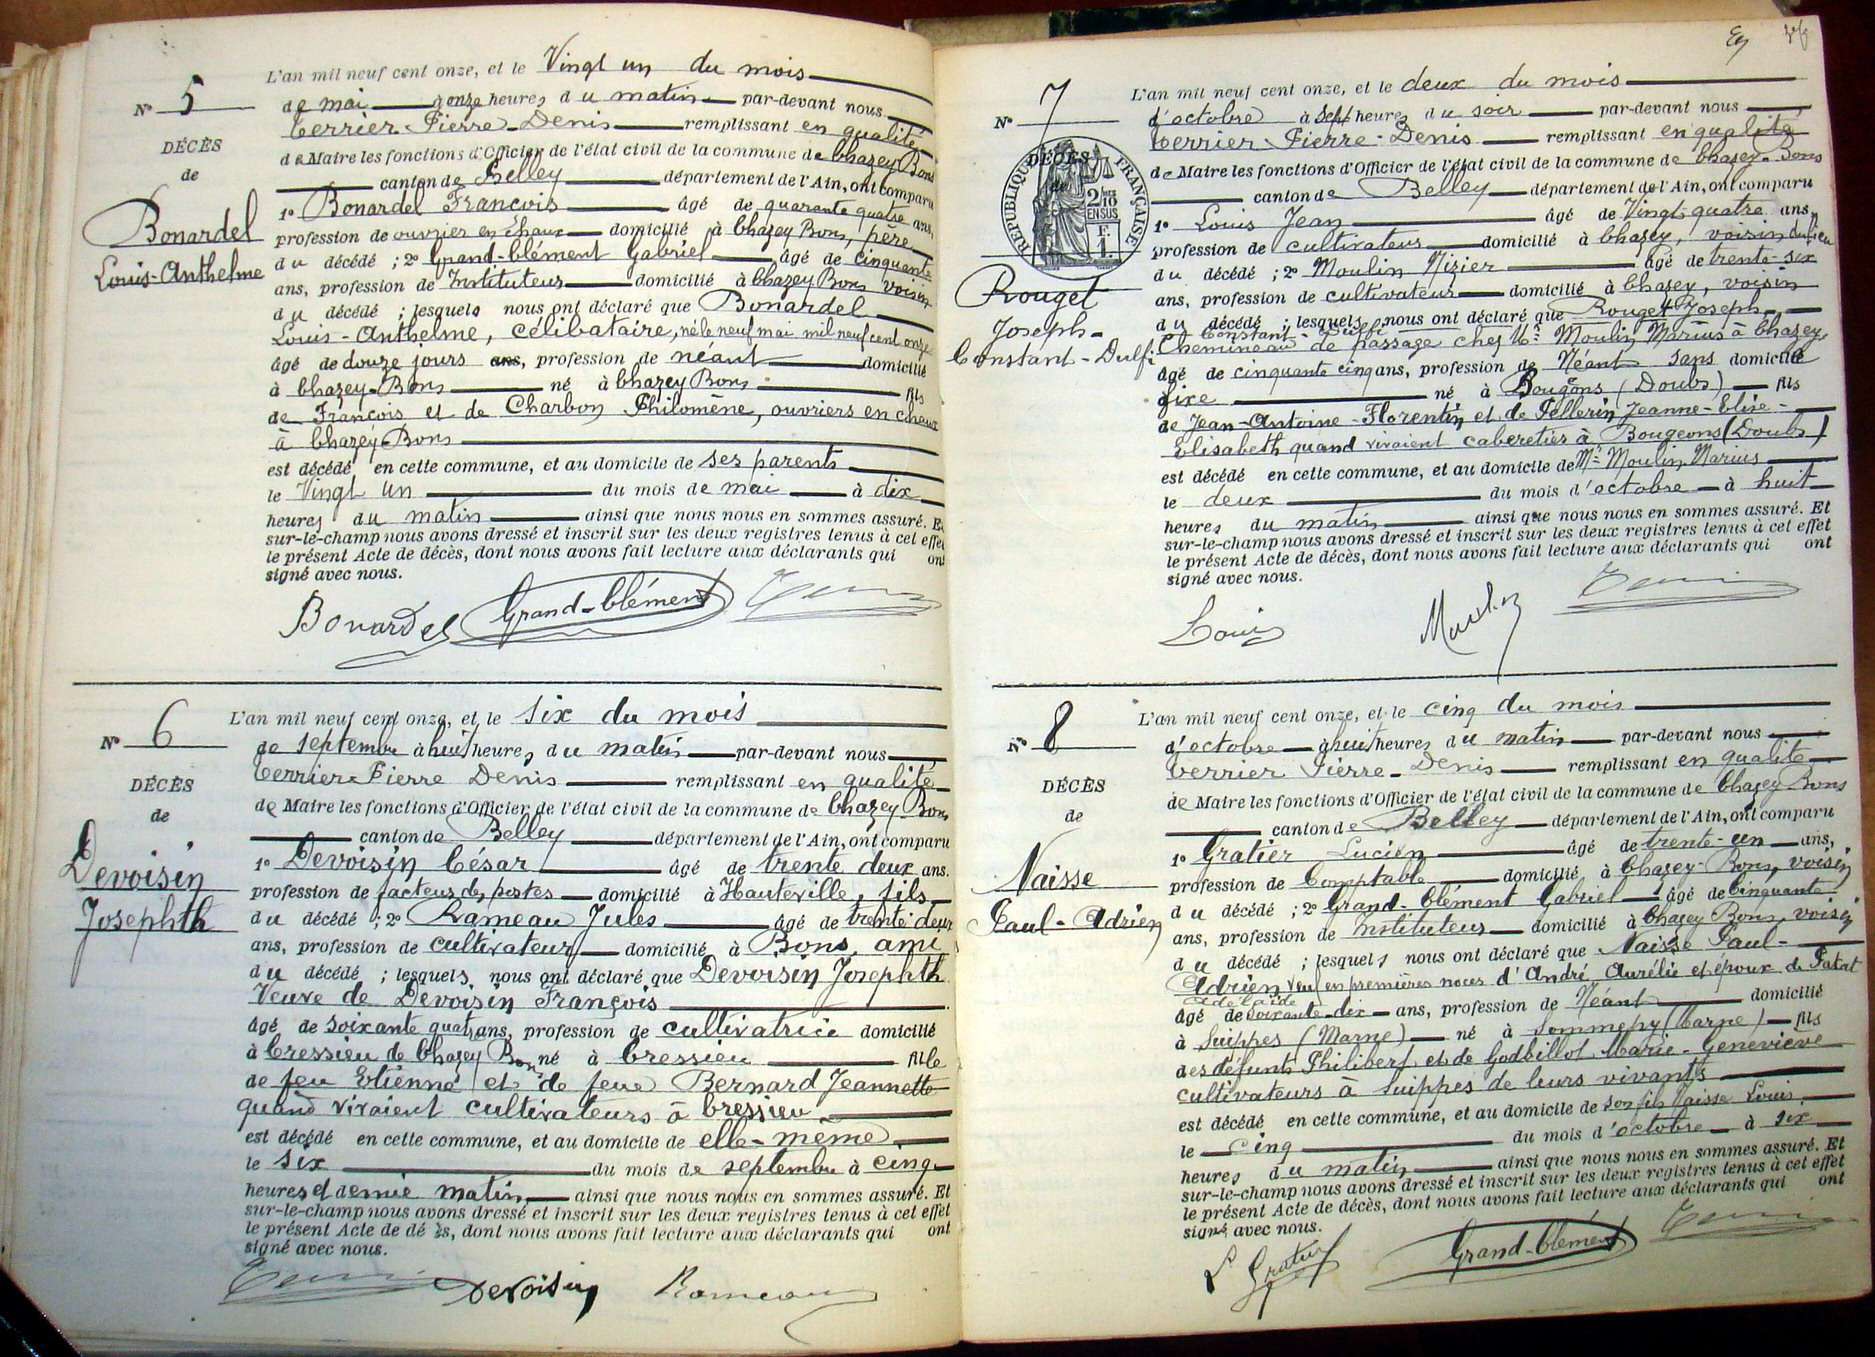 L'an mil neuf cent onze, et le Vingt un du mois
N° 5
de mai à onze heures du matin par-devant nous
Terrier Pierre-Denis remplissant en qualité
DÉCÈS
de Maire les fonctions d'Officier de l'état civil de la commune de Chazey Bons
de
canton de Belley département de l'Ain, ont comparu
1° Bonardel François âgé de quarante quatre ans,
Bonardel
profession de ouvrier en chaux domicilié à Chazey Bons, père
Louis-Anthelme
du décédé ; 2° Grand-Clément Gabriel âgé de cinquante
ans, profession de Instituteur domicilié à Chazey Bons voisin
du décédé ; lesquels nous ont déclaré que Bonardel
Louis-Anthelme, célibataire, né le neuf mai mil neuf cent onze
âgé de douze jours ans, profession de néant domicilié
à Chazey-Bons né à Chazey Bons fils
de François et de Charbon Philomène, ouvriers en chaux
à Chazey-Bons
est décédé en cette commune, et au domicile de ses parents
le Vingt un du mois de mai à dix
heures du matin ainsi que nous nous en sommes assuré. Et
sur-le-champ nous avons dressé et inscrit sur les deux registres tenus à cet effet
le présent Acte de décès, dont nous avons fait lecture aux déclarants qui ont
signé avec nous.
Bonardel Grand-Clément
L'an mil neuf cent onze, et le six du mois
N° 6
de septembre à huit heures du matin par-devant nous
Terrier Pierre Denis remplissant en qualité
DÉCÈS
de Maire les fonctions d'Officier de l'état civil de la commune de Chazey Bons
de
canton de Belley département de l'Ain, ont comparu
1° Devoisin César âgé de trente deux ans.
Devoisin
profession de facteur des postes domicilié à Hauteville, fils
Josephth
du décédé ; 2° Rameau Jules âgé de trente deux
ans, profession de cultivateur domicilié à Bons, ami
du décédé ; lesquels nous ont déclaré que Devoisin Josephth
Veuve de Devoisin François
âgé de soixante quatre ans, profession de cultivatrice domicilié
à Cressieu de Chazey Bons né à Cressieu fille
de feu Etienne et de feue Bernard Jeannette
quand vivaient cultivateurs à Cressieu
est décédé en cette commune, et au domicile de elle-même
le six du mois de septembre à cinq
heures et demie matin ainsi que nous nous en sommes assuré. Et
sur-le-champ nous avons dressé et inscrit sur les deux registres tenus à cet effet
le présent Acte de dé ès, dont nous avons fait lecture aux déclarants qui ont
signé avec nous.
Devoisin Rameau
L'an mil neuf cent onze, et le deux du mois
N° 7
d'octobre à sept heures du soir par-devant nous
Terrier Pierre-Denis remplissant en qualité
DÉCÈS
de Maire les fonctions d'Officier de l'état civil de la commune de Chazey-Bons
de
RÉPUBLIQUE FRANÇAISE
2/10 EN SUS
F.
1.
canton de Belley département de l'Ain, ont comparu
1° Louis Jean âgé de Vingt quatre ans,
profession de cultivateur domicilié à Chazey, voisin du lieu
du décédé ; 2° Moulin Nizier âgé de trente-six
Rouget
ans, profession de cultivateur domicilié à Chazey, voisin
Joseph-
du décédé ; lesquels nous ont déclaré que Rouget Joseph
Constant-Dulfi
Constant-Dulfi
Chemineau de passage chez Mr Moulin Marius à Chazey
âgé de cinquante cinq ans, profession de Néant sans domicilié
fixe né à Bougeons (Doubs) fils
de Jean-Antoine-Florentin et de Pellerin Jeanne-Elise-
Elisabeth quand vivaient cabaretier à Bougeons (Doubs)
est décédé en cette commune, et au domicile de Mr Moulin Marius
le deux du mois d'octobre à huit
heures du matin ainsi que nous nous en sommes assuré. Et
sur-le-champ nous avons dressé et inscrit sur les deux registres tenus à cet effet
le présent Acte de décès, dont nous avons fait lecture aux déclarants qui ont
signé avec nous.
Louis Moulin
L'an mil neuf cent onze, et le cinq du mois
N° 8
d'octobre à huit heures du matin par-devant nous
Terrier Pierre-Denis remplissant en qualité
DÉCÈS
de Maire les fonctions d'Officier de l'état civil de la commune de Chazey Bons
de
canton de Belley département de l'Ain, ont comparu
1° Gratier Lucien âgé de trente-un ans,
Naisse
profession de Comptable domicilié à Chazey-Bons, voisin
Paul-Adrien
du décédé ; 2° Grand-Clément Gabriel âgé de Cinquante
ans, profession de Instituteur domicilié à Chazey Bons, voisin
du décédé ; lesquels nous ont déclaré que Naisse Paul-
Adrien veuf en premières noces d'André Aurélie et époux de Patat
adelaïde
âgé de soixante-dix ans, profession de Néant domicilié
à Suippes (Marne) né à Sommepy (Marne) fils
des défunts Philibert et de Godbillot Marie-Geneviève
cultivateurs à Suippes de leurs vivants
est décédé en cette commune, et au domicile de son fils Naisse Louis
le cinq du mois d'octobre à six
heures du matin ainsi que nous nous en sommes assuré. Et
sur-le-champ nous avons dressé et inscrit sur les deux registres tenus à cet effet
le présent Acte de décès, dont nous avons fait lecture aux déclarants qui ont
signé avec nous.
L Gratier Grand-Clément